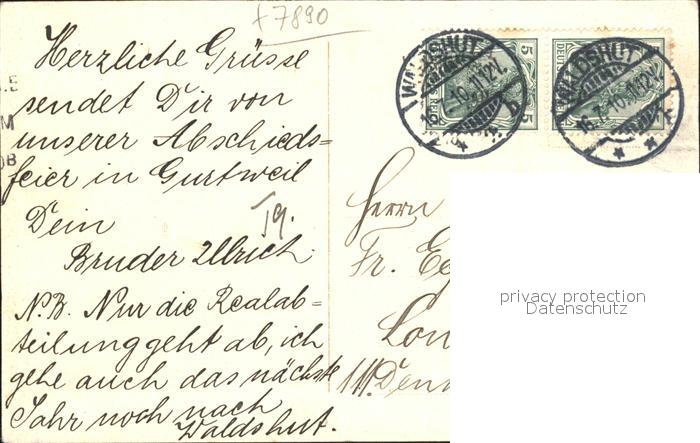 f7890
Herzliche Grüsse
sendet Dir von
unserer Abschieds=
feier in Gurtweil
Dein
Bruder Ullrich.
N.B. Nur die Realab=
teilung geht ab, ich
gehe auch das nächste
Jahr noch nach
Waldshut.
19.
WALDSHUT
WALDSHUT
16.7.10.
5
5
Herrn
Fr.
privacy protection
Datenschutz